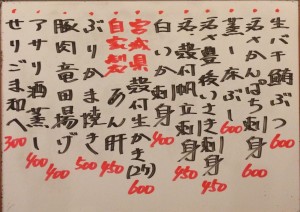 生バチ鮪ぶつ 600
活〆かんぱち刺身 600
蒸し床ぶし 600
活〆豊後いさき刺身 450
殻付帆立刺身 450
白いか刺身 400
宮城県殻付生かき(2ヶ) 600
自家製あん肝 450
ぶりかま焼き 500
豚肉竜田揚げ 400
アサリ酒蒸し 400
せりごま和へ 300